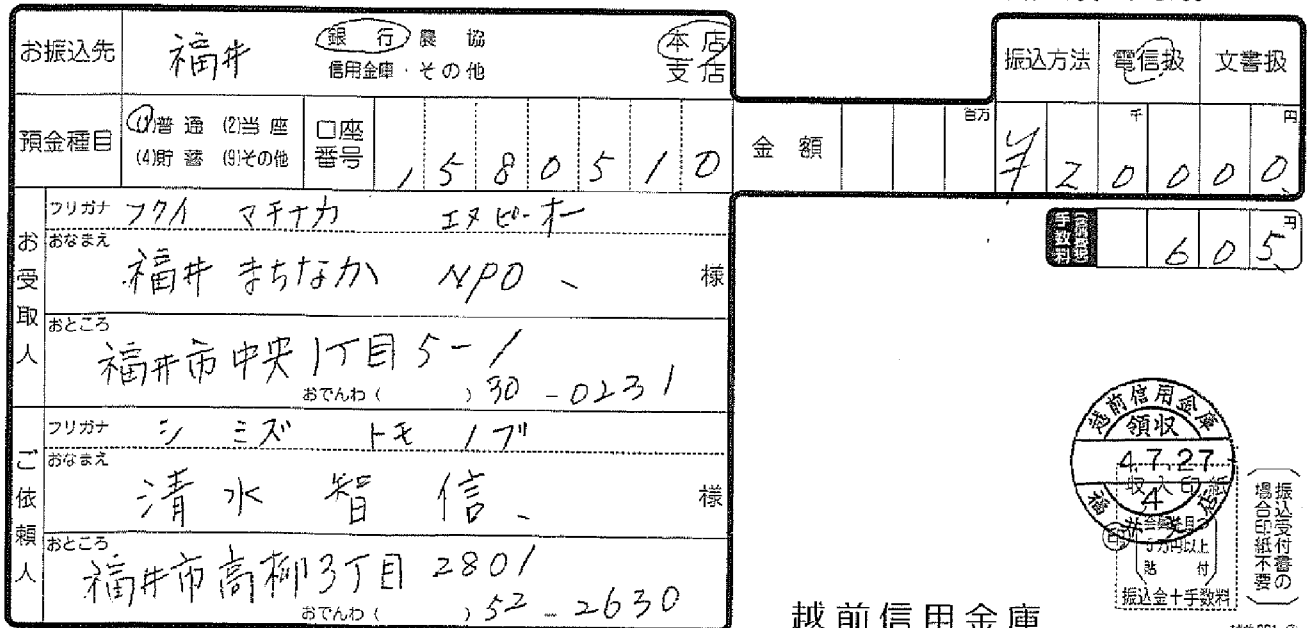 お振込先 福井 銀行 農協 本店
信用金庫・その他 支店
振込方法 電信扱 文書扱
預金種目 (1)普通 (2)当座
(4)貯蓄 (9)その他
口座番号 1580510
金額 百万 千 円
¥20000
手数料 円 605
お受取人
フリガナ フクイ マチナカ エヌピーオー
おなまえ 福井 まちなか NPO 様
おところ 福井市中央1丁目5-1
おでんわ( )30-0231
ご依頼人
フリガナ シミズ トモノブ
おなまえ 清水 智信 様
おところ 福井市高柳3丁目2801
おでんわ( )52-2630
越前信用金庫
領収
4.7.27
4
福井支店
収入印紙
5万円以上
貼付
振込金十手数料
振込受付書の
場合印紙不要
越前信用金庫